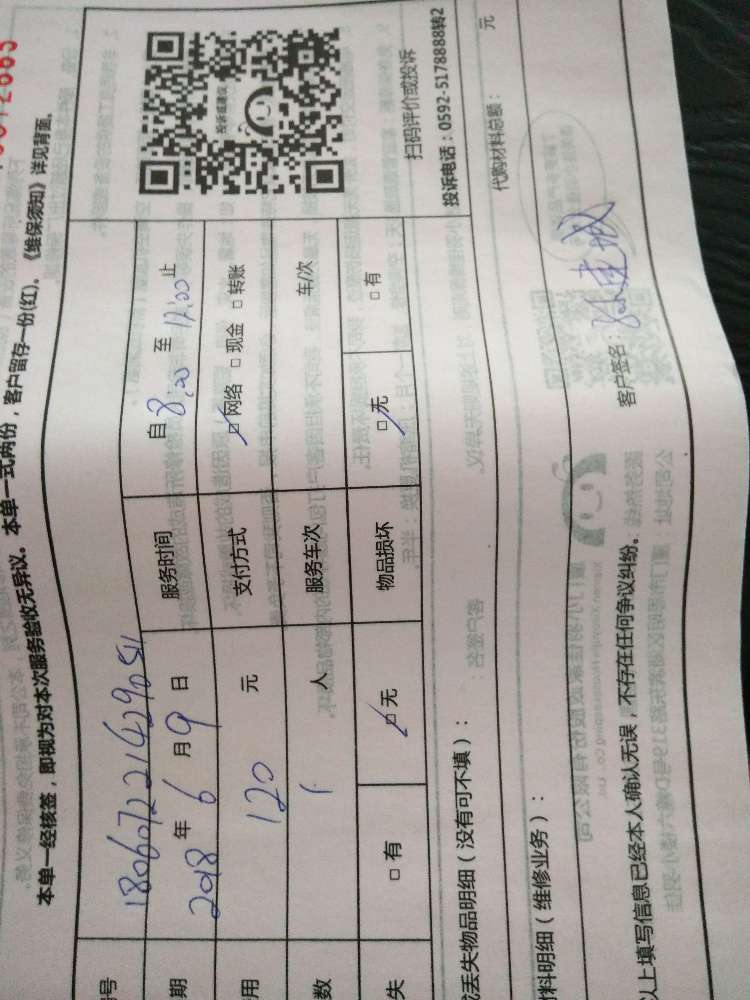 本单一经核签，即视为对本次服务验收无异议。本单一式两份，客户留存一份(红)。《维保须知》详见背面。
号 180607221429051
期 2018 年 6 月 9 日 服务时间 自 8:00 至 12:00 止
用 120 元 支付方式 ☑网络 □现金 □转账
数 1 人 服务车次 车/次
失 □有 ☑无 物品损坏 ☑无 □有
投诉或建议
扫码评价或投诉
投诉电话：0592-5178888转2
丢失物品明细（没有可不填）：
料明细（维修业务）： 代购材料总额： 元
以上填写信息已经本人确认无误，不存在任何争议纠纷。 客户签名：